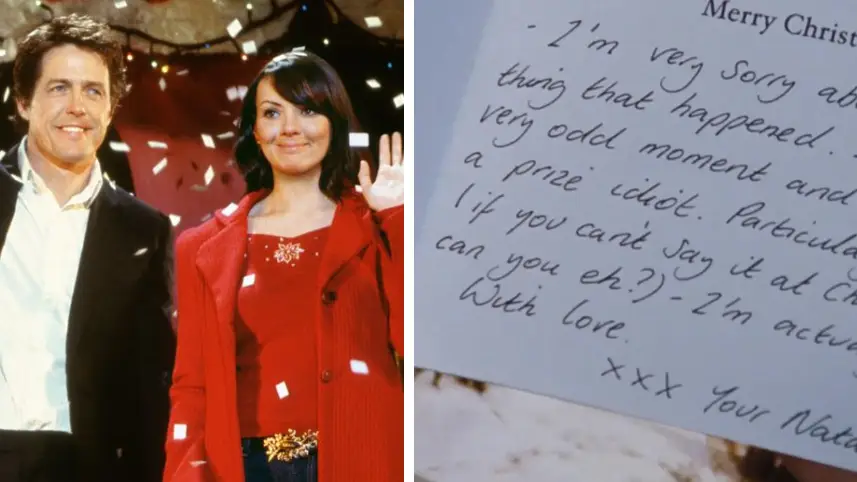 Merry Christ
- I'm very sorry ab
thing that happened.
very odd moment and
a prize idiot. Particula
(if you can't say it at Ch
can you eh?) - I'm actu
With love.
xxx Your Nata